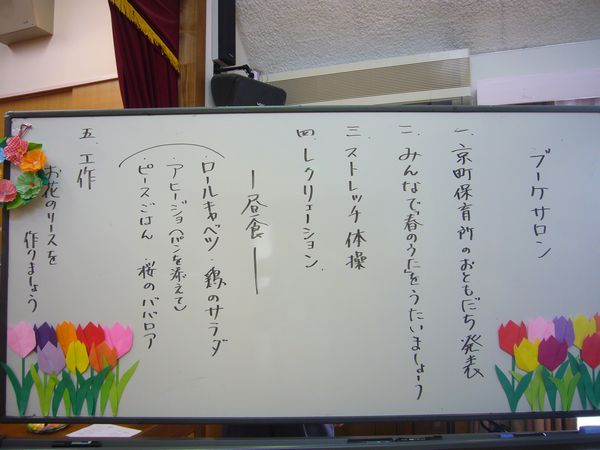 ブーケサロン
一、京町保育所のおともだち発表
二、みんなで「春のうた」をうたいましょう
三、ストレッチ体操
四、レクリェーション
ー昼食ー
・ロールキャベツ・鶏のサラダ
・アヒージョ(パンを添えて)
・ピースごはん・桜のババロア
五、工作
お花のリースを
作りましょう